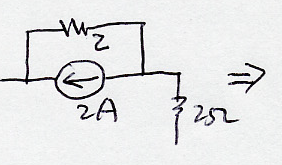 2
2A
2Ω